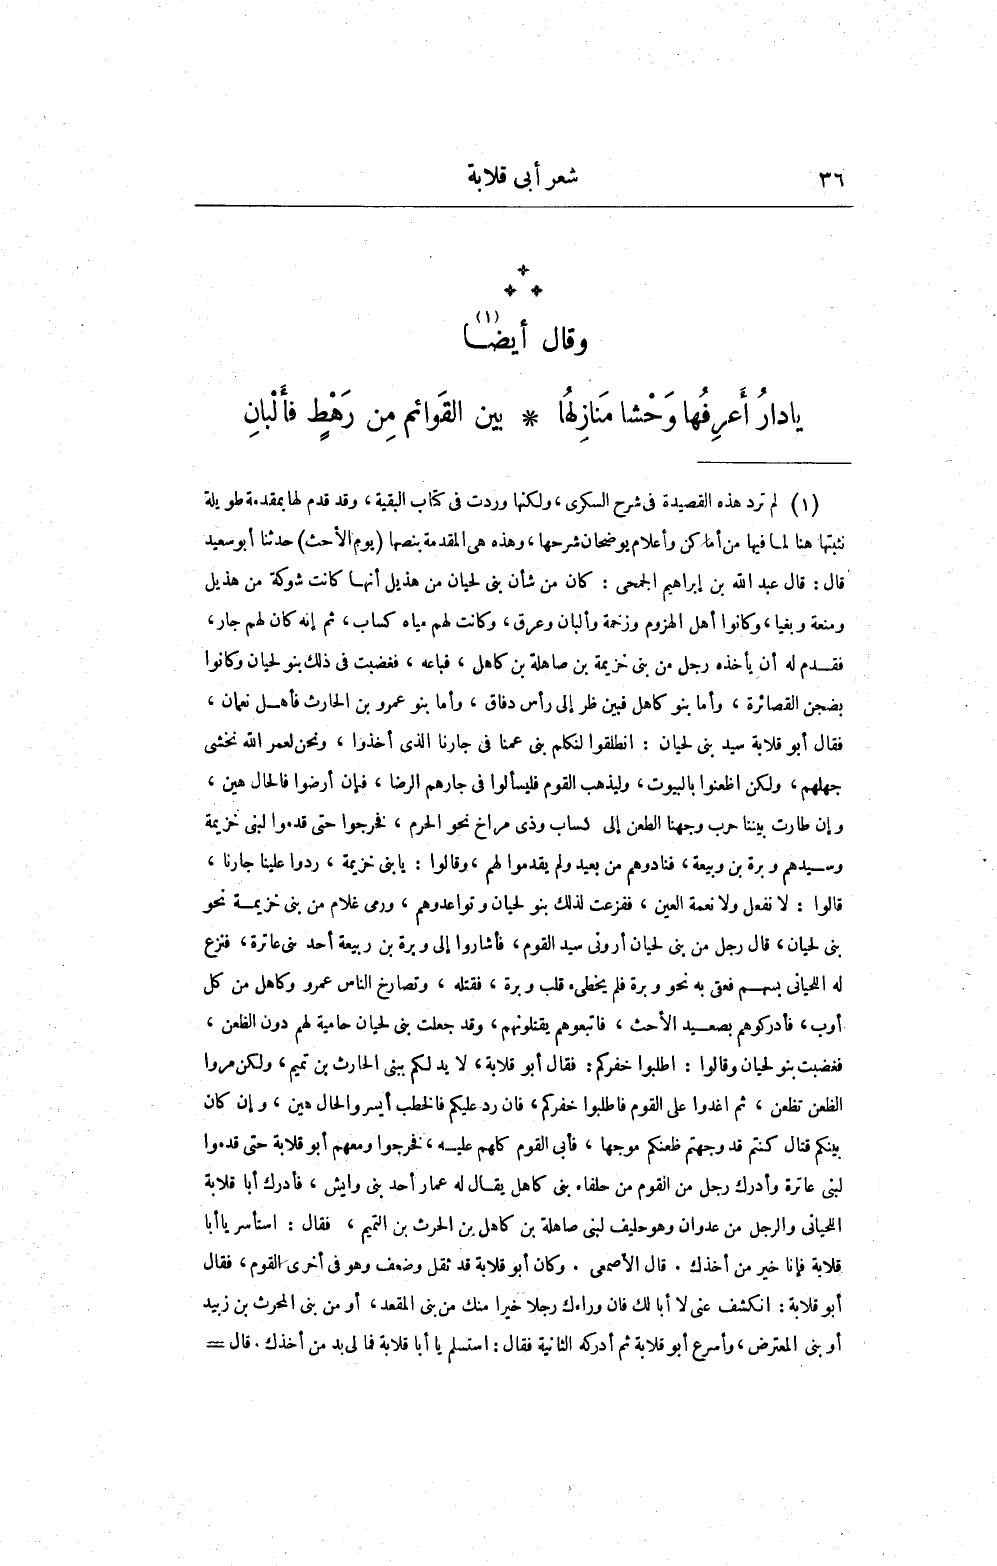 ٣٦ شعر أبى قلابة
وقال أيضــا (١)
يادارُ أَعرِفُها وَحْشا مَنازِلهُا * بين القَوائمِ مِن رَهْطٍ فأَلْبانِ
(١) لم ترد هذه القصيدة فى شرح السكرى، ولكنها وردت فى كتاب البقية، وقد قدم لها بمقدمة طويلة
نثبتها هنا لمـا فيها من أماكن وأعلام يوضحان شرحها، وهذه هى المقدمة بنصها (يوم الأحث) حدثنا أبو سعيد
قال: قال عبد الله بن إبراهيم الجمحى: كان من شأن بنى لحيان من هذيل أنهـا كانت شوكة من هذيل
ومنعة وبغيا، وكانوا أهل الهزوم وزخمة وألبان وعرق، وكانت لهم مياه كساب، ثم إنه كان لهم جار،
فقــدم له أن يأخذه رجل من بنى خزيمة بن صاهلة بن كاهل، فباعه، فغضبت فى ذلك بنو لحيان وكانوا
بضجن القصائرة، وأما بنو كاهل فبين ظر إلى رأس دفاق، وأما بنو عمرو بن الحارث فأهــل نعمان،
فقال أبو قلابة سيد بنى لحيان: انطلقوا لنكلم بنى عمنا فى جارنا الذى أخذوا، ونحن لعمر الله نخشى
جهلهم، ولكن اظعنوا بالبيوت، وليذهب القوم فليسألوا فى جارهم الرضا، فإن أرضوا فالحال هين،
وإن طارت بيننا حرب وجهنا الظعن إلى كساب وذى مراخ نحو الحرم، فخرجوا حتى قدموا لبنى خزيمة
وســيدهم وبرة بن ربيعة، فنادوهم من بعيد ولم يقدموا لهم، وقالوا: يابنى خزيمة، ردوا علينا جارنا،
قالوا: لا نفعل ولا نعمة العين، ففزعت لذلك بنو لحيان وتواعدوهم، ورمى غلام من بنى خزيمــة نحو
بنى لحيان، قال رجل من بنى لحيان أرونى سيد القوم، فأشاروا إلى وبرة بن ربيعة أحد بنى عاترة، فنزع
له اللحيانى بسهــم فعق به نحو وبرة فلم يخطىء قلب وبرة، فقتله، وتصارخ الناس عمرو وكاهل من كل
أوب، فأدركوهم بصعــيد الأحث، فاتبعوهم يقتلونهم، وقد جعلت بنى لحيان حامية لهم دون الظعن،
فغضبت بنو لحيان وقالوا: اطلبوا خفركم: فقال أبو قلابة، لا يد لكم ببنى الحارث بن تميم، ولكن مروا
الظعن تظعن، ثم اغدوا على القوم فاطلبوا خفركم، فان رد عليكم فالخطب أيسر والحال هين، وإن كان
بينكم قتال كنتم قد وجهتم ظعنكم موجها، فأبى القوم كلهم عليــه، فخرجوا ومعهم أبو قلابة حتى قدموا
لبنى عاترة وأدرك رجل من القوم من حلفاء بنى كاهل يقــال له عمار أحد بنى وابش، فأدرك أبا قلابة
اللحيانى والرجل من عدوان وهو حليف لبنى صاهلة بن كاهل بن الحرث بن التميم، فقال: استأسر يا أبا
قلابة فإنا خير من أخذك. قال الأصمعى. وكان أبو قلابة قد ثقل وضعف وهو فى أخرى القوم، فقال
أبو قلابة: انكشف عنى لا أبا لك فان وراءك رجلا خيرا منك من بنى المقعد، أو من بنى المحرث بن زبيد
أو بنى المعترض، وأسرع أبو قلابة ثم أدركه الثانية فقال: استسلم يا أبا قلابة فما لى بد من أخذك. قال =